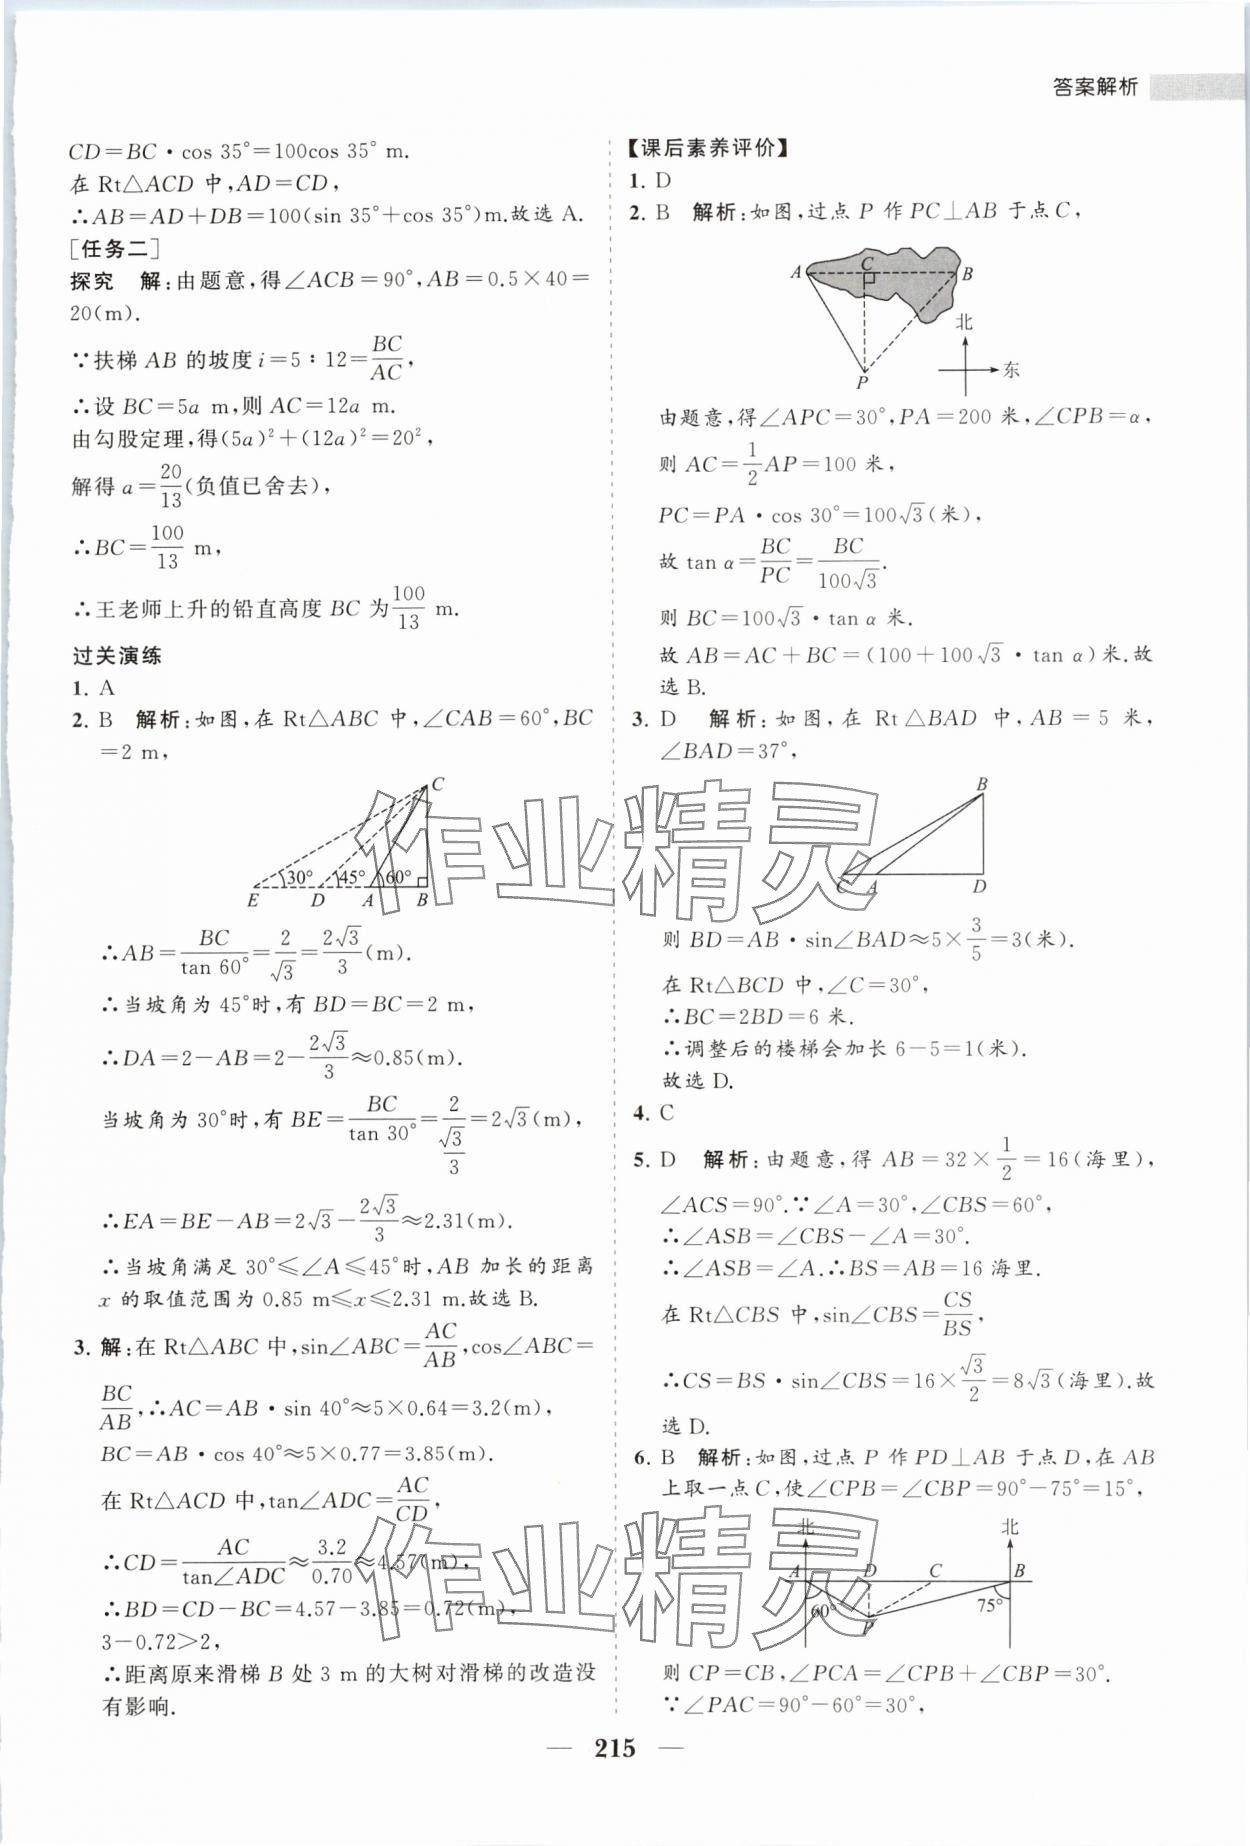 答案解析
CD=BC·cos 35°=100cos 35° m.
在 Rt△ACD 中,AD=CD,
∴AB=AD+DB=100(sin 35°+cos 35°)m.故选 A.
[任务二]
探究 解:由题意,得∠ACB=90°,AB=0.5×40=
20(m).
∵扶梯 AB 的坡度 i=5∶12=BC/AC,
∴设 BC=5a m,则 AC=12a m.
由勾股定理,得(5a)²+(12a)²=20²,
解得 a=20/13(负值已舍去),
∴BC=100/13 m,
∴王老师上升的铅直高度 BC 为100/13 m.
过关演练
1. A
2. B 解析:如图,在 Rt△ABC 中,∠CAB=60°,BC
=2 m,
C
30° 45° 60°
E D A B
∴AB=BC/tan 60°=2/√3=2√3/3(m).
∴当坡角为 45°时,有 BD=BC=2 m,
∴DA=2-AB=2-2√3/3≈0.85(m).
当坡角为 30°时,有 BE=BC/tan 30°=2/(√3/3)=2√3(m),
∴EA=BE-AB=2√3-2√3/3≈2.31(m).
∴当坡角满足 30°≤∠A≤45°时,AB 加长的距离
x 的取值范围为 0.85 m≤x≤2.31 m.故选 B.
3. 解:在 Rt△ABC 中,sin∠ABC=AC/AB,cos∠ABC=
BC/AB,∴AC=AB·sin 40°≈5×0.64=3.2(m),
BC=AB·cos 40°≈5×0.77=3.85(m).
在 Rt△ACD 中,tan∠ADC=AC/CD,
∴CD=AC/tan∠ADC≈3.2/0.70≈4.57(m),
∴BD=CD-BC=4.57-3.85=0.72(m),
3-0.72>2,
∴距离原来滑梯 B 处 3 m 的大树对滑梯的改造没
有影响.
【课后素养评价】
1. D
2. B 解析:如图,过点 P 作 PC⊥AB 于点 C,
A C B
北
东
P
由题意,得∠APC=30°,PA=200 米,∠CPB=α,
则 AC=1/2AP=100 米,
PC=PA·cos 30°=100√3(米),
故 tan α=BC/PC=BC/100√3.
则 BC=100√3·tan α 米.
故 AB=AC+BC=(100+100√3·tan α)米.故
选 B.
3. D 解析:如图,在 Rt△BAD 中,AB=5 米,
∠BAD=37°,
B
C A D
则 BD=AB·sin∠BAD≈5×3/5=3(米).
在 Rt△BCD 中,∠C=30°,
∴BC=2BD=6 米.
∴调整后的楼梯会加长 6-5=1(米).
故选 D.
4. C
5. D 解析:由题意,得 AB=32×1/2=16(海里),
∠ACS=90°.∵∠A=30°,∠CBS=60°,
∴∠ASB=∠CBS-∠A=30°.
∴∠ASB=∠A.∴BS=AB=16 海里.
在 Rt△CBS 中,sin∠CBS=CS/BS,
∴CS=BS·sin∠CBS=16×√3/2=8√3(海里).故
选 D.
6. B 解析:如图,过点 P 作 PD⊥AB 于点 D,在 AB
上取一点 C,使∠CPB=∠CBP=90°-75°=15°,
北 北
A D C B
60° P 75°
则 CP=CB,∠PCA=∠CPB+∠CBP=30°.
∵∠PAC=90°-60°=30°,
作业精灵
作业精灵
— 215 —